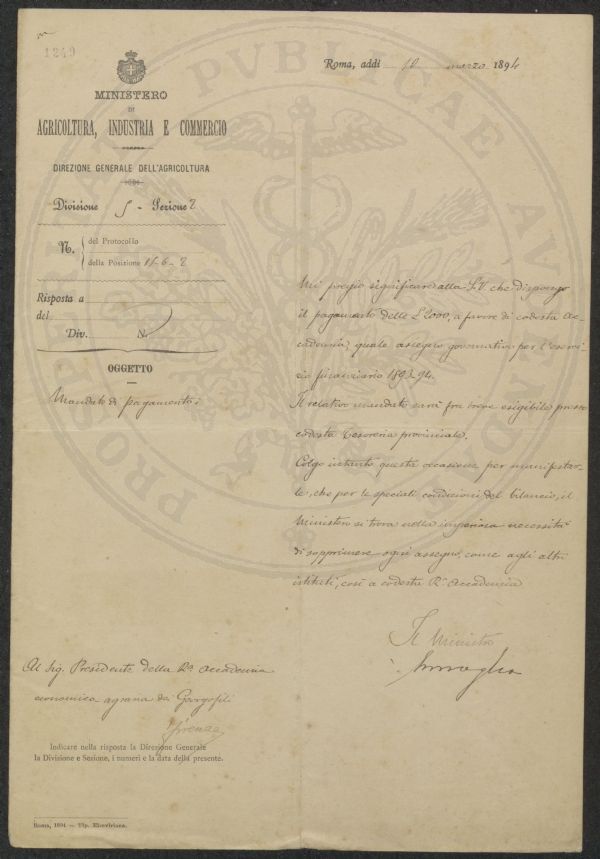 1249
Roma, addì 10 marzo 1894
MINISTERO
DI
AGRICOLTURA, INDUSTRIA E COMMERCIO
DIREZIONE GENERALE DELL'AGRICOLTURA
Divisione 5 - Sezione 2
N. del Protocollo
della Posizione 15-6-2
Risposta a
del
Div. N.
OGGETTO
Mandato di pagamento
Mi pregio significare alla S.V. che dispongo
il pagamento delle £ 2000, a favore di codesta Ac-
cademia, quale assegno governativo per l'eserci-
zio finanziario 1893-94.
Il relativo mandato sarà fra breve esigibile presso
codesta Tesoreria provinciale.
Colgo intanto questa occasione per manifestar-
le, che per le speciali condizioni del bilancio, il
Ministero si trova nella imperiosa necessità
di sopprimere ogni assegno, come agli altri
istituti, così a codesta Rª Accademia
Il Ministro
Al Sig. Presidente della Rª Accademia
economico agraria dei Georgofili
Firenze
Indicare nella risposta la Direzione Generale
la Divisione e Sezione, i numeri e la data della presente.
Roma, 1894 — Tip. Elzeviriana.
PROSPERITATI PUBLICAE AUGENDAE